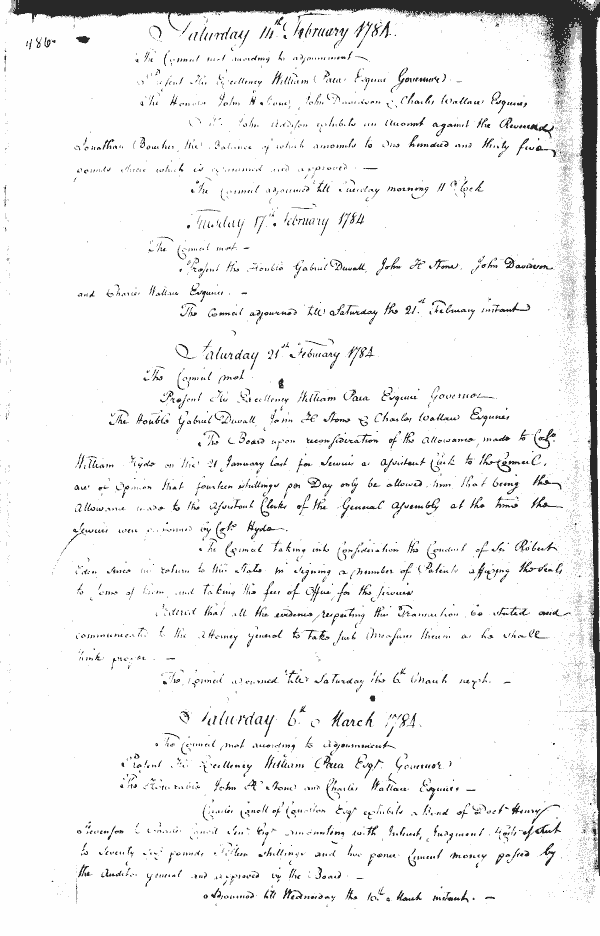 486
Saturday 14th February 1784.
The Council met according to adjournment
Present His Excellency William Paca Esquire Governor
The Honble John H Stone, John Davidson & Charles Wallace Esquires
Mr John Addison exhibits an Account against the Reverend
Jonathan Boucher, the Balance of which amounts to One hundred and thirty five
pounds which is examined and approved. —
The Council adjourned till Tuesday morning 11 oClock
Tuesday 17th February 1784
The Council met —
Present the Honble Gabriel Duvall, John H Stone, John Davidson
and Charles Wallace Esquires. —
The Council adjourned till Saturday the 21st February instant
Saturday 21st February 1784
The Council met
Present His Excellency William Paca Esquire Governor
The Honble Gabriel Duvall John H Stone & Charles Wallace Esquires
The Board upon reconsideration of the Allowance made to Colo
William Hyde on the 21 January last for Service as Assistant Clerk to the Council,
are of Opinion that fourteen shillings per Day only be allowed him that being the
Allowance made to the Assistant Clerks of the General Assembly at the time the
Services were performed by Colo Hyde
The Council taking into Consideration the Conduct of Sir Robert
Eden since his return to this State in signing a number of Patents affixing the seals
to some of them, and taking the fees of Office for the Services
Ordered that all the evidence respecting this Transaction be stated and
communicated to the Attorney General to take such Measures therein as he shall
think proper. —
The Council adjourned till Saturday the 6th March next. —
Saturday 6th March 1784.
The Council met according to Adjournment
Present His Excellency William Paca Esqr. Governor
The Honorable John H Stone and Charles Wallace Esquires —
Charles Carroll of Carrollton Esqr exhibits a Bond of Doctr Henry
Stevenson to Charles Carroll Senr Esqr amounting with Interest, Judgment & Costs of suit
to Seventy Six pounds fifteen shillings and two pence Current money passed by
the Auditor General and approved by the Board
Adjourned till Wednesday the 10th March instant. —